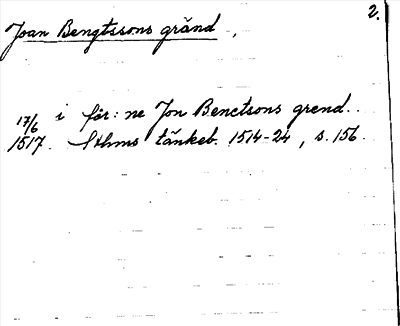 2.
Joan Bengtssons gränd,
17/6 i får: ne Jon Benctsons grend.
1517. Sthms tänkeb. 1514-24, s. 156.